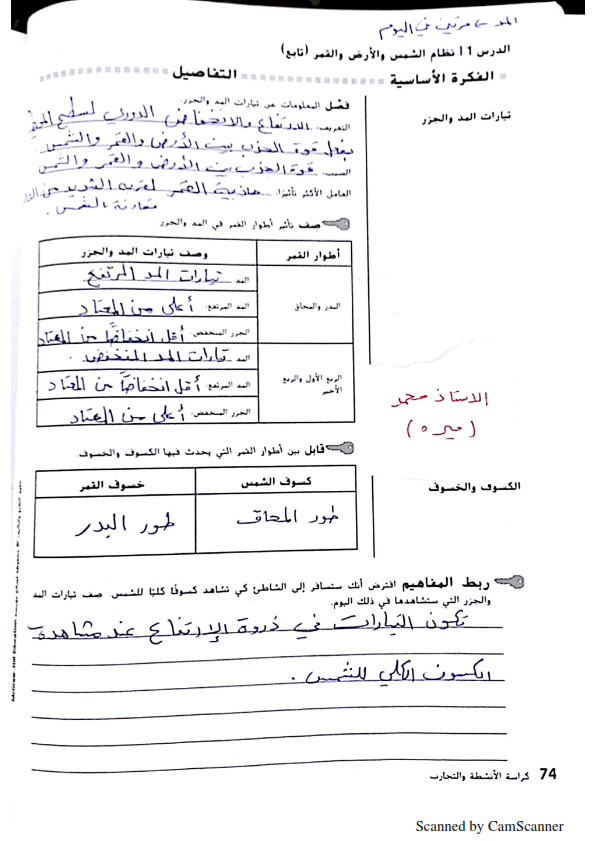 المد مرتين في اليوم
الدرس 1 | نظام الشمس والأرض والقمر (تابع)
الفكرة الأساسية
التفاصيل
تيارات المد والجزر
فصّل المعلومات عن تيارات المد والجزر.
التعريف: الارتفاع والانخفاض الدوري لسطح المحيط
بفعل قوة الجذب بين الأرض والقمر والشمس
السبب: قوة الجذب بين الأرض والقمر والشمس
العامل الأكثر تأثيرًا: جاذبية القمر لقربه الشديد من
مقارنة بالشمس.
صف تأثير أطوار القمر في المد والجزر
أطوار القمر
وصف تيارات المد والجزر
البدر والمحاق
المد: تيارات المد المرتفع
المد المرتفع: أعلى من المعتاد
الجزر المنخفض: أقل انخفاضًا من المعتاد
الربع الأول والربع الأخير
المد: تيارات المد المنخفض.
المد المرتفع: أقل انخفاضًا من المعتاد
الجزر المنخفض: أعلى من المعتاد
الاستاذ محمد
(ميره)
الكسوف والخسوف
قابل بين أطوار القمر التي يحدث فيها الكسوف والخسوف
كسوف الشمس
خسوف القمر
طور المحاق
طور البدر
ربط المفاهيم افترض أنك ستسافر إلى الشاطئ كي تشاهد كسوفًا كليًا للشمس. صف تيارات المد
والجزر التي ستشاهدها في ذلك اليوم.
تكون التيارات في ذروة الإرتفاع عند مشاهدة
الكسوف الكلي للشمس.
74 كراسة الأنشطة والتجارب
Scanned by CamScanner